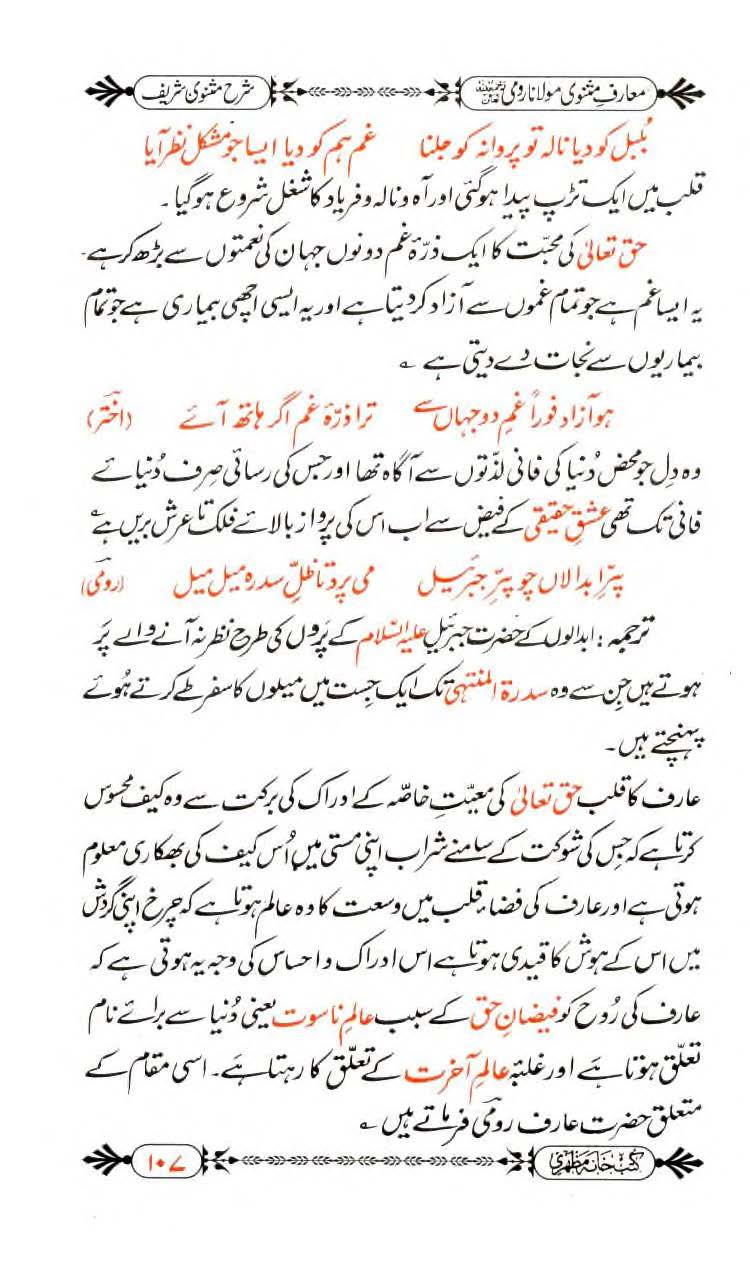 معارفِ مثنوی مولانا رومی شرح مثنوی شریف
بُلبل کو دیا نالہ تو پروانہ کو جلنا غم ہم کو دیا ایسا جو مشکل نظر آیا
قلب میں ایک تڑپ پیدا ہوگئی اور آہ و نالہ و فریاد کا شغل شروع ہوگیا۔
حق تعالیٰ کی محبّت کا ایک ذرّۂ غم دونوں جہان کی نعمتوں سے بڑھ کر ہے۔
یہ ایسا غم ہے جو تمام غموں سے آزاد کردیتا ہے اور یہ ایسی اچھی بیماری ہے جو تمام
بیماریوں سے نجات دے دیتی ہے ؎
ہو آزاد فوراً غمِ دو جہاں سے ترا ذرّۂ غم اگر ہاتھ آئے (اخترؔ)
وہ دِل جو محض دُنیا کی فانی لذّتوں سے آگاہ تھا اور جس کی رسائی صِرف دُنیائے
فانی تک تھی عشقِ حقیقی کے فیض سے اب اس کی پرواز بالائے فلک تا عرش بریں ہے ؎
پرِّ ابدالاں چو پرِّ جبرئیل می پرد تا ظلِّ سدرہ میل میل (رومیؔ)
ترجمہ : ابدالوں کے حضرت جبرئیل علیہ السّلام کے پَروں کی طرح نظر نہ آنے والے پَر
ہوتے ہیں جن سے وہ سدرۃ المنتہیٰ تک ایک جست میں میلوں کا سفر طے کرتے ہُوئے
پہنچتے ہیں۔
عارف کا قلب حق تعالیٰ کی معیّتِ خاصّہ کے ادراک کی برکت سے وہ کیف محسوس
کرتا ہے کہ جس کی شوکت کے سامنے شراب اپنی مستی میں اُس کیف کی بھکاری معلوم
ہوتی ہے اور عارف کی فضاء قلب میں وسعت کا وہ عالم ہوتا ہے کہ چرخ اپنی گردش
میں اس کے ہوش کا قیدی ہوتا ہے اس ادراک و احساس کی وجہ یہ ہوتی ہے کہ
عارف کی رُوح کو فیضانِ حق کے سبب عالمِ ناسوت یعنی دُنیا سے برائے نام
تعلّق ہوتا ہے اور غلبۂ عالمِ آخرت کے تعلّق کا رہتا ہے۔ اسی مقام کے
متعلق حضرت عارف رومیؔ فرماتے ہیں ؎
کتب خانہ مظہری ۱۰۷